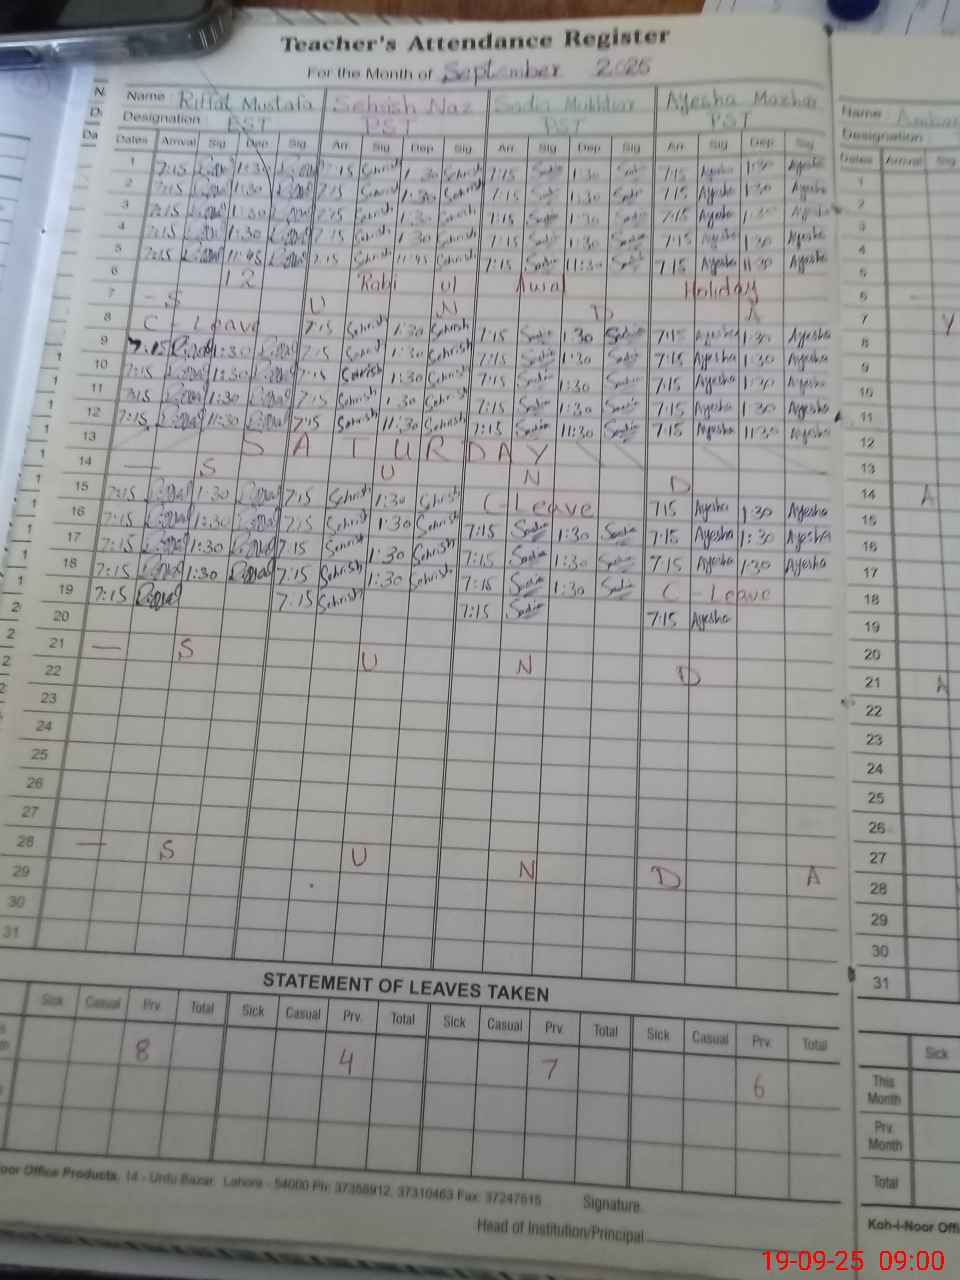 Teacher's Attendance Register
For the Month of September 2025
Name: Riffat Mustafa Sehrish Naz Sadia Mukhtiar Ayesha Mazhar
Designation: PST PST PST PST
Dates Arrival Sig Dep Sig Arr Sig Dep Sig Arr Sig Dep Sig Arr Sig Dep Sig
1 7:15 1:30 7:15 Sehrish 1:30 Sehrish 7:15 Sadia 1:30 Sadia 7:15 Ayesha 1:30 Ayesha
2 7:15 1:30 7:15 Sehrish 1:30 Sehrish 7:15 Sadia 1:30 Sadia 7:15 Ayesha 1:30 Ayesha
3 7:15 1:30 7:15 Sehrish 1:30 Sehrish 7:15 Sadia 1:30 Sadia 7:15 Ayesha 1:30 Ayesha
4 7:15 1:30 7:15 Sehrish 1:30 Sehrish 7:15 Sadia 1:30 Sadia 7:15 Ayesha 1:30 Ayesha
5 7:15 11:45 7:15 Sehrish 11:45 Sehrish 7:15 Sadia 11:30 Sadia 7:15 Ayesha 11:30 Ayesha
6 12 Rabi ul Awal Holiday
7 - S U N D A
8 C - Leave 7:15 Sehrish 1:30 Sehrish 7:15 Sadia 1:30 Sadia 7:15 Ayesha 1:30 Ayesha
9 7:15 1:30 7:15 Sehrish 1:30 Sehrish 7:15 Sadia 1:30 Sadia 7:15 Ayesha 1:30 Ayesha
10 7:15 1:30 7:15 Sehrish 1:30 Sehrish 7:15 Sadia 1:30 Sadia 7:15 Ayesha 1:30 Ayesha
11 7:15 1:30 7:15 Sehrish 1:30 Sehrish 7:15 Sadia 1:30 Sadia 7:15 Ayesha 1:30 Ayesha
12 7:15 11:30 7:15 Sehrish 11:30 Sehrish 7:15 Sadia 11:30 Sadia 7:15 Ayesha 11:30 Ayesha
13 S A T U R D A Y
14 — S U N D
15 7:15 1:30 7:15 Sehrish 1:30 Sehrish C-Leave 7:15 Ayesha 1:30 Ayesha
16 7:15 1:30 7:15 Sehrish 1:30 Sehrish 7:15 Sadia 1:30 Sadia 7:15 Ayesha 1:30 Ayesha
17 7:15 1:30 7:15 Sehrish 1:30 Sehrish 7:15 Sadia 1:30 Sadia 7:15 Ayesha 1:30 Ayesha
18 7:15 1:30 7:15 Sehrish 1:30 Sehrish 7:15 Sadia 1:30 Sadia C - Leave
19 7:15 7:15 Sehrish 7:15 Sadia 7:15 Ayesha
20
21 — S U N D
22
23
24
25
26
27
28 — S U N D A
29
30
31
STATEMENT OF LEAVES TAKEN
Sick Casual Prv. Total Sick Casual Prv. Total Sick Casual Prv. Total Sick Casual Prv. Total
8 4 7 6
oor Office Products, 14 - Urdu Bazar, Lahore - 54000 Ph: 37358912, 37310463 Fax: 37247615 Signature.
Head of Institution/Principal
Name:
Designation:
Dates Arrival Sig
1
2
3
4
5
6
7 Y
8
9
10
11
12
13
14 A
15
16
17
18
19
20
21 A
22
23
24
25
26
27
28
29
30
31
Sick
This Month
Prv. Month
Total
Koh-i-Noor Offi
19-09-25 09:00